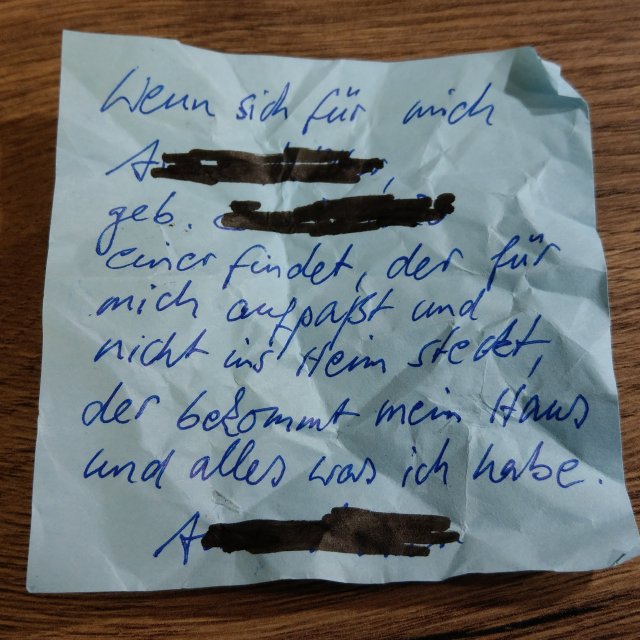 Wenn sich für mich
A
geb.
einer findet, der für
mich aufpaßt und
nicht ins Heim steckt,
der bekommt mein Haus
und alles was ich habe.
A